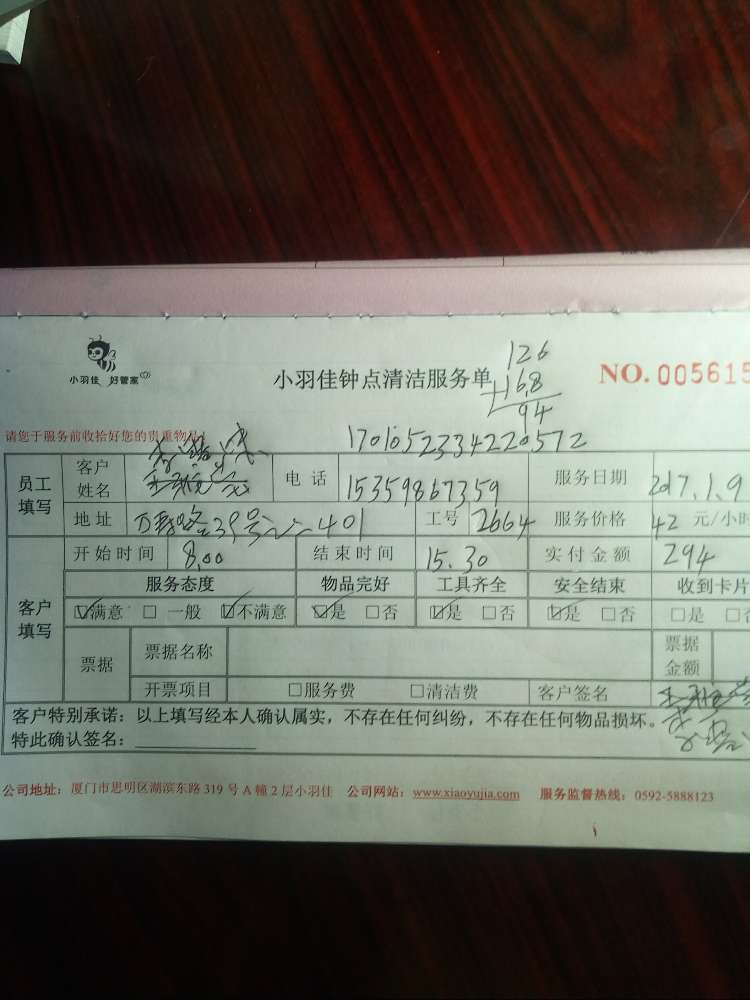 小羽佳 好管家
小羽佳钟点清洁服务单
NO. 005615
126
+168
94
请您于服务前收拾好您的贵重物品!
1701052334220572
员工填写 客户姓名 电话 15359867359 服务日期 2017.1.9
地址 39号 401 工号 2664 服务价格 42 元/小时
客户填写 开始时间 8.00 结束时间 15.30 实付金额 294
服务态度 物品完好 工具齐全 安全结束 收到卡片
☑满意 □一般 ☑不满意 ☑是 □否 ☑是 □否 ☑是 □否 □是 □否
票据 票据名称 票据金额
开票项目 □服务费 □清洁费 客户签名
客户特别承诺:以上填写经本人确认属实,不存在任何纠纷,不存在任何物品损坏。
特此确认签名:
公司地址:厦门市思明区湖滨东路 319 号 A 幢 2 层小羽佳 公司网站:www.xiaoyujia.com 服务监督热线:0592-5888123